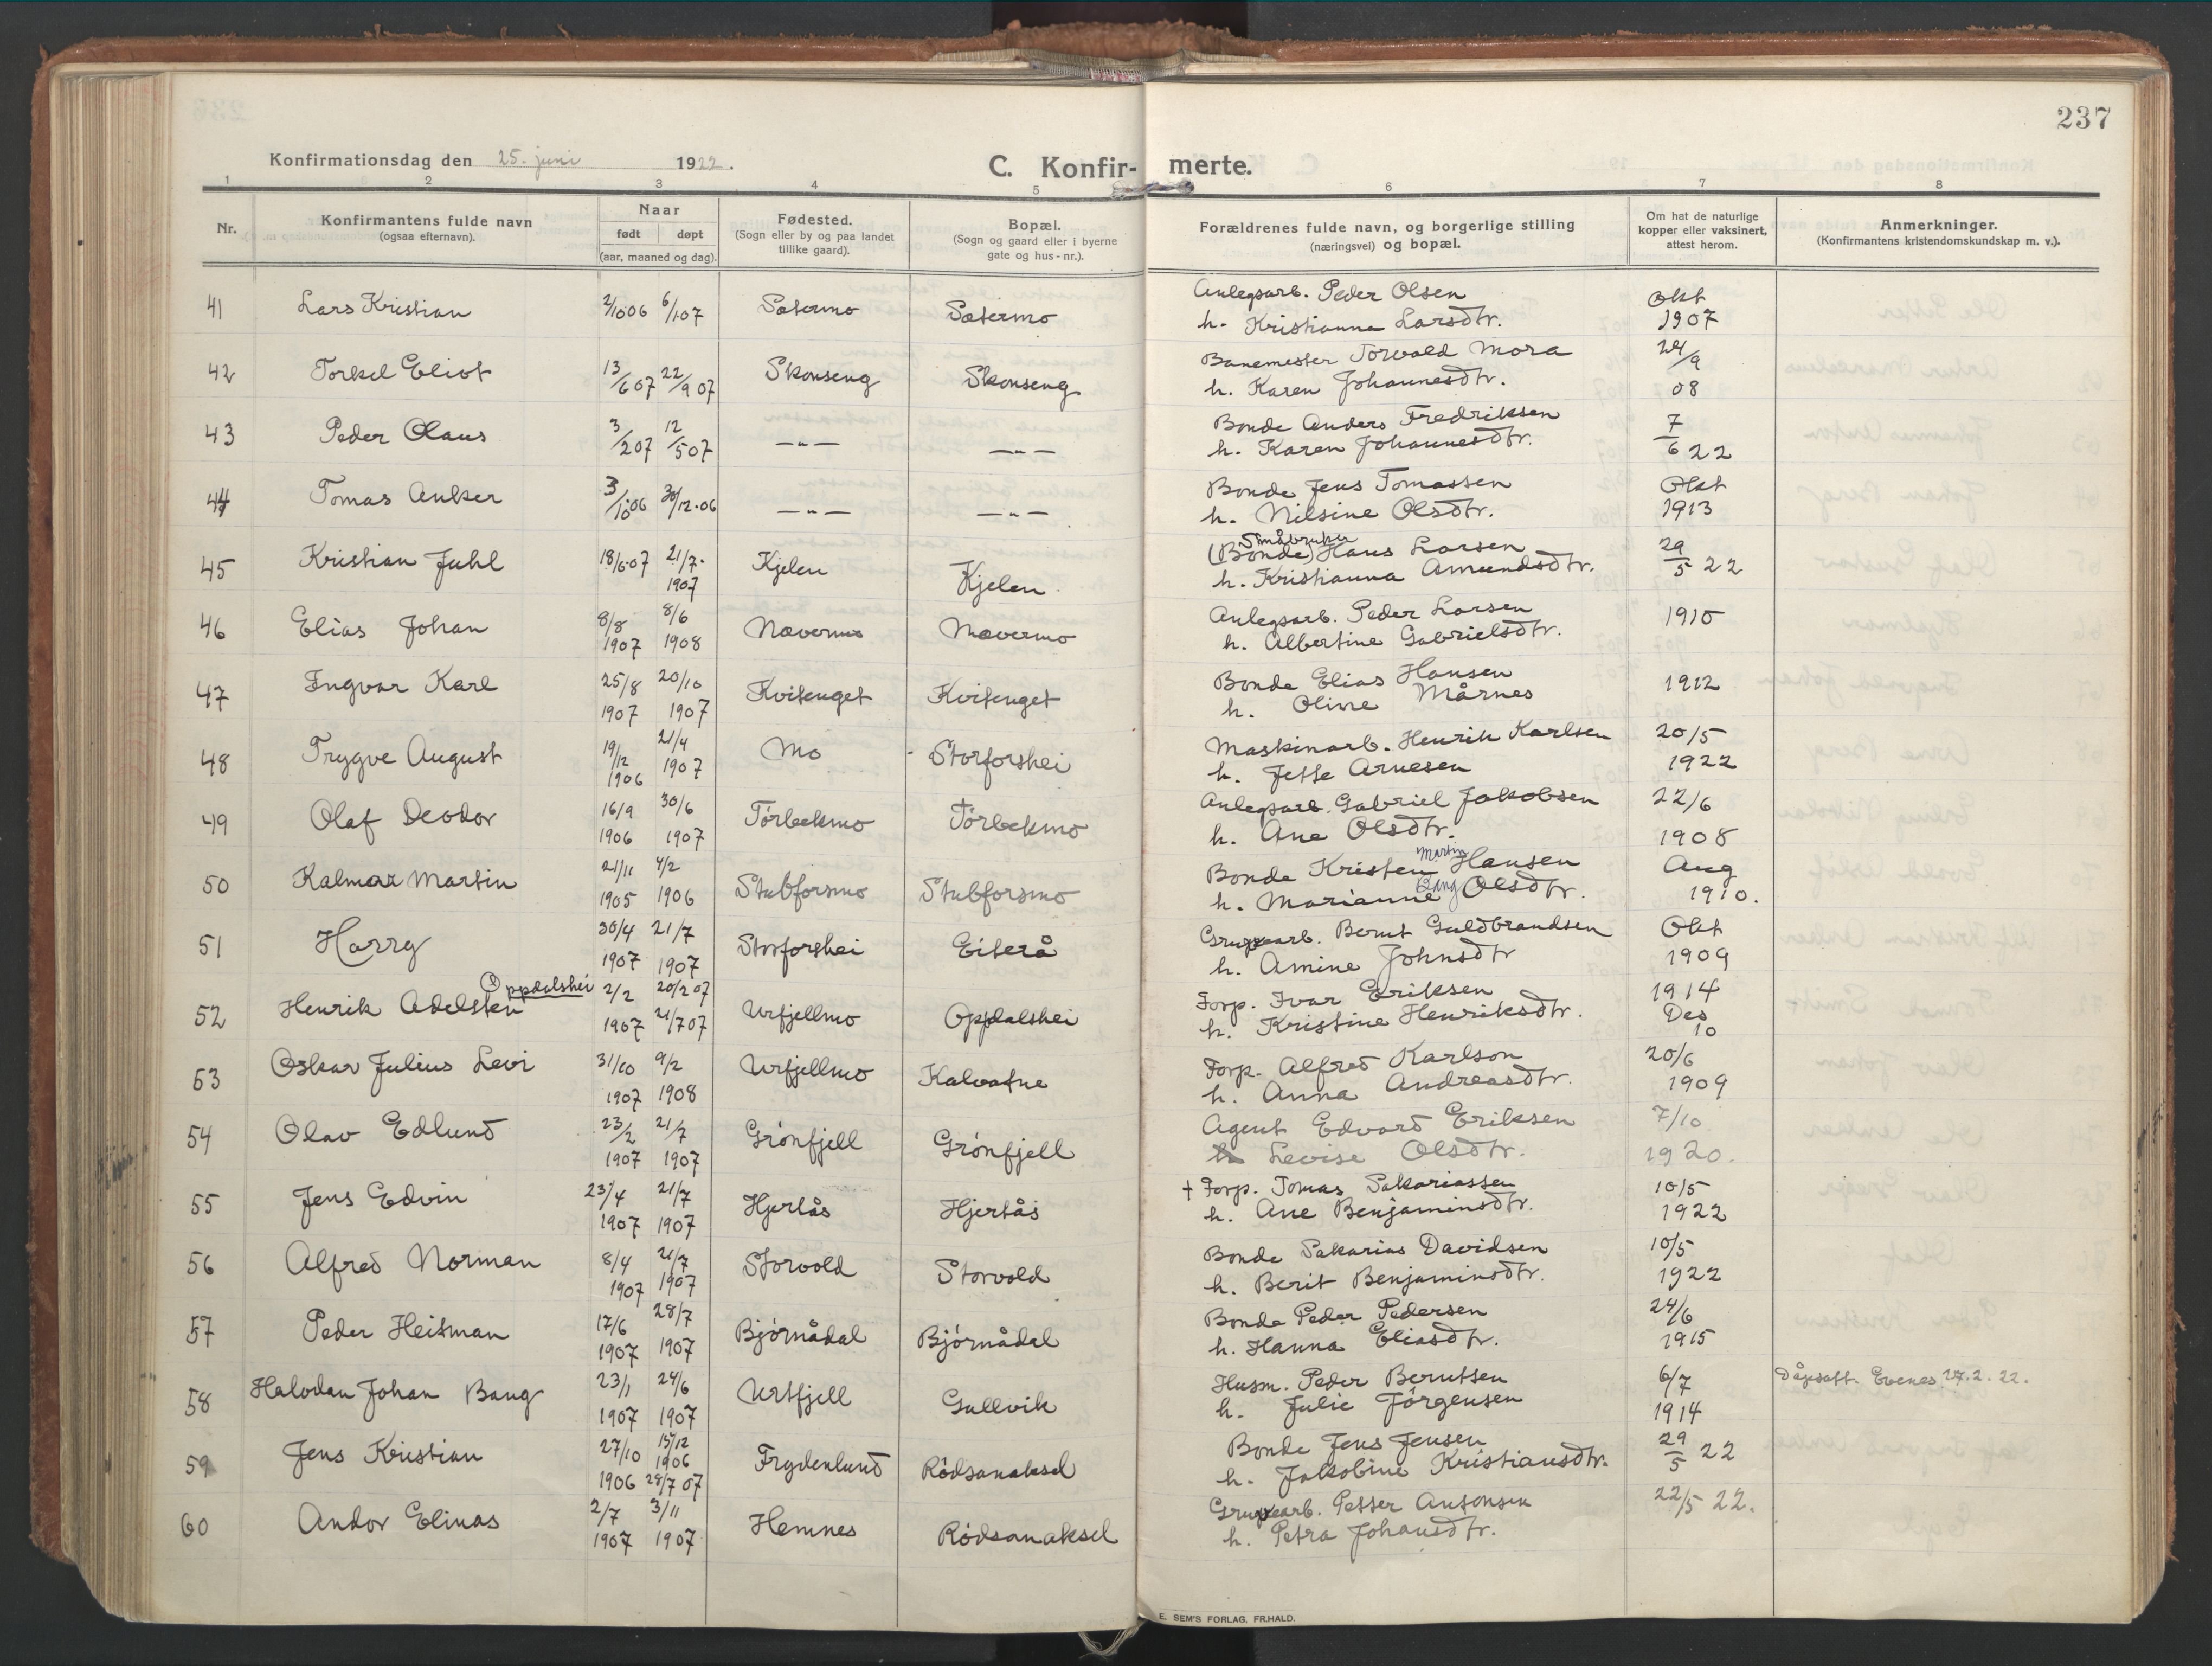 237
Konfirmationsdag den 25. juni 1922.
C. Konfir- merte.
1 2 3 4 5 6 7 8
Nr.
Konfirmantens fulde navn
(ogsaa efternavn).
Naar
født døpt
(aar, maaned og dag).
Fødested.
(Sogn eller by og paa landet
tillike gaard).
Bopæl.
(Sogn og gaard eller i byerne
gate og hus-nr.).
Forældrenes fulde navn, og borgerlige stilling
(næringsvei) og bopæl.
Om hat de naturlige
kopper eller vaksinert,
attest herom.
Anmerkninger.
(Konfirmantens kristendomskundskap m. v.).
41 Lars Kristian 2/10 06 6/1 07 Sætermo Sætermo Anlegsarb. Peder Olsen Okt
h. Kristianna Larsdtr. 1907
42 Torkel Eliot 13/6 07 22/9 07 Skonseng Skonseng Banemester Torvald Mora 24/9
h. Karen Johannesdtr. 08
43 Peder Olaus 3/2 07 12/5 07 —„— —„— Bonde Anders Fredriksen 7
h. Karen Johannesdtr. 6 22
44 Tomas Anker 3/10 06 30/12.06 —„— —„— Bonde Jens Tomassen Okt
h. Nilsine Olsdtr. 1913
Småbruker
45 Kristian Juhl 18/6 07 21/7. Kjelen Kjelen (Bonde) Hans Larsen 29
1907 h. Kristianna Amundsdtr. 5 22
46 Elias Johan 8/8 8/6 Nævermo Nævermo Anlegsarb. Peder Larsen 1910
1907 1908 h. Albertine Gabrielsdtr.
47 Ingvar Karl 25/8 20/10 Kvitenget Kvitenget Bonde Elias Hansen 1912
1907 1907 h. Oline Mårnes
48 Trygve August 19/12 21/4 Mo Storforshei Maskinarb. Henrik Karlsen 20/5
1906 1907 h. Jette Arnesen 1922
49 Olaf Deodor 16/9 30/6 Tørbekmo Tørbekmo Anlegsarb. Gabriel Jakobsen 22/6
1906 1907 h. Ane Olsdtr. 1908
Martin
50 Kalmar Martin 21/11 4/2 Stubforsmo Stubforsmo Bonde Kristen Hansen Aug
1905 1906 h. Marianne Bang Olsdtr. 1910.
51 Harry 30/4 21/7 Storforshei Eiterå Grupearb. Bernt Guldbrandsen Okt
1907 1907 h. Amine Johnsdtr 1909
Oppdalshei
52 Henrik Adelsten 2/2 20/2 07 Urfjellmo Oppdalshei Forp. Ivar Eriksen 1914
1907 21/7 07 h. Kristine Henriksdtr. Des
10
53 Oskar Julius Levi 31/10 9/2 Urfjellmo Kalvatne Forp. Alfred Karlson 20/6
1907 1908 h. Anna Andreasdtr. 1909
54 Olav Edlund 23/2 21/7 Grønfjell Grønfjell Agent Edvard Eriksen 7/10
1907 1907 h Levise Olsdtr. 1920.
55 Jens Edvin 23/4 21/7 Hjertås Hjertås † Forp. Tomas Sakariassen 10/5
1907 1907 h. Ane Benjaminsdtr. 1922
56 Alfred Norman 8/4 21/7 Storvold Storvold Bonde Sakarias Davidsen 10/5
1907 1907 h. Berit Benjaminsdtr. 1922
57 Peder Heitman 17/6 28/7 Bjørnådal Bjørnådal Bonde Peder Pedersen 24/6
1907 1907 h. Hanna Eliasdtr. 1915
58 Halvdan Johan Bang 23/1 24/6 Urtfjell Gullvik Husm. Peder Berntsen 6/7 Dåpsatt. Evenes 27.2.22.
1907 1907 h. Julie Jørgensen 1914
59 Jens Kristian 27/10 15/12 Frydenlund Rødsanaksel Bonde Jens Jensen 29
1906 1906 28/7 07 h. Jakobine Kristiansdtr. 5 22
60 Andor Elinas 2/7 3/11 Hemnes Rødsanaksel Grupearb. Petter Antonsen 22/5 22.
1907 1907 h. Petra Johansdtr.
E. SEM'S FORLAG, FR.HALD.